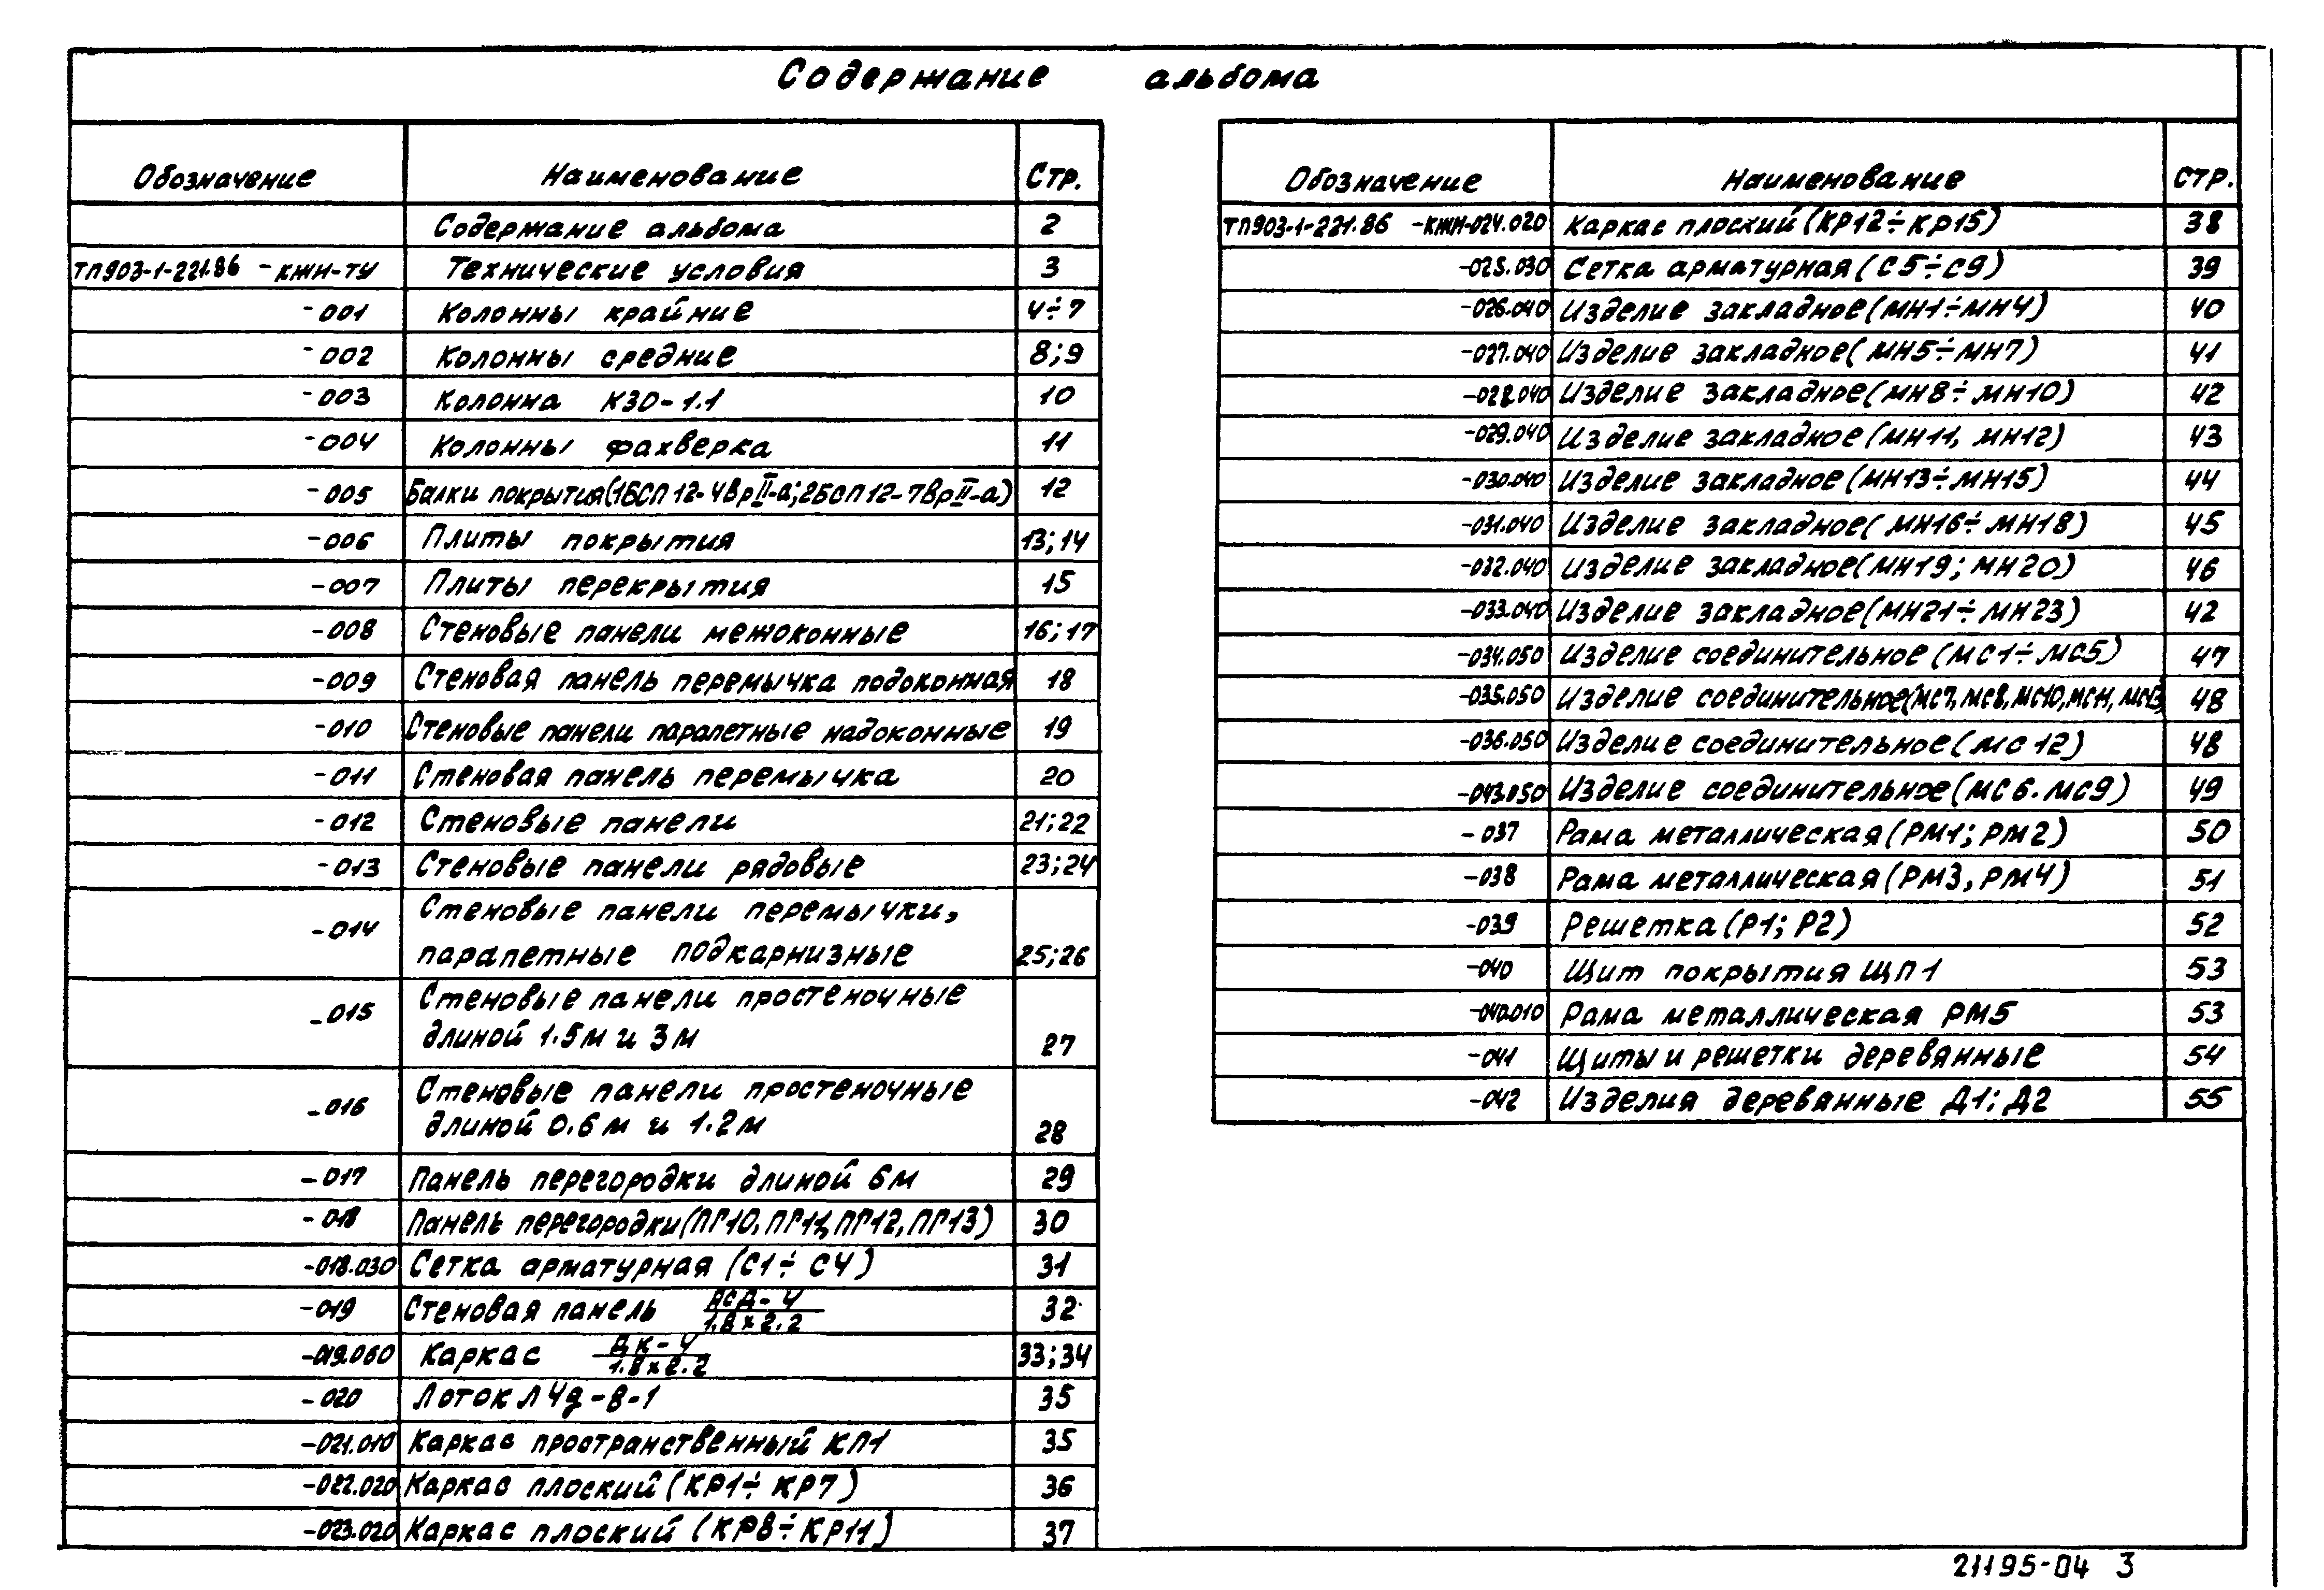 Содержание альбома
Обозначение Наименование Стр.
Содержание альбома 2
ТП903-1-221.86 -КЖИ-ТУ Технические условия 3
-001 Колонны крайние 4÷7
-002 Колонны средние 8;9
-003 Колонна КЭО-1.1 10
-004 Колонны фахверка 11
-005 Балки покрытия(1БСП12-4ВрII-а;2БСП12-7ВрII-а) 12
-006 Плиты покрытия 13;14
-007 Плиты перекрытия 15
-008 Стеновые панели межоконные 16;17
-009 Стеновая панель перемычка подоконная 18
-010 Стеновые панели парапетные надоконные 19
-011 Стеновая панель перемычка 20
-012 Стеновые панели 21;22
-013 Стеновые панели рядовые 23;24
-014 Стеновые панели перемычки,
парапетные подкарнизные 25;26
-015 Стеновые панели простеночные
длиной 1.5м и 3м 27
-016 Стеновые панели простеночные
длиной 0.6м и 1.2м 28
-017 Панель перегородки длиной 6м 29
-018 Панель перегородки(ПГ10,ПГ11,ПГ12,ПГ13) 30
-018.030 Сетка арматурная (С1÷С4) 31
-019 Стеновая панель 32
1.8×2.2
-019.060 Каркас ДК-4 33;34
1.8×2.2
-020 Лоток Л4д-8-1 35
-021.010 Каркас пространственный КП1 35
-022.020 Каркас плоский (КР1÷КР7) 36
-023.020 Каркас плоский (КР8÷КР11) 37
Обозначение Наименование Стр.
ТП903-1-221.86 -КЖИ-024.020 Каркас плоский (КР12÷КР15) 38
-025.030 Сетка арматурная (С5÷С9) 39
-026.040 Изделие закладное(МН1÷МН4) 40
-027.040 Изделие закладное(МН5÷МН7) 41
-028.040 Изделие закладное(МН8÷МН10) 42
-029.040 Изделие закладное (МН11, МН12) 43
-030.040 Изделие закладное (МН13÷МН15) 44
-031.040 Изделие закладное(МН16÷МН18) 45
-032.040 Изделие закладное(МН19; МН20) 46
-033.040 Изделие закладное(МН21÷МН23) 42
-034.050 Изделие соединительное (МС1÷МС5) 47
-035.050 Изделие соединительное(МС7,МС8,МС10,МС11,МС13) 48
-036.050 Изделие соединительное(МС12) 48
-043.050 Изделие соединительное (МС6.МС9) 49
-037 Рама металлическая (РМ1; РМ2) 50
-038 Рама металлическая (РМ3, РМ4) 51
-039 Решетка (Р1; Р2) 52
-040 Щит покрытия ЩП1 53
-040.010 Рама металлическая РМ5 53
-041 Щиты и решетки деревянные 54
-042 Изделия деревянные Д1; Д2 55
21195-04 3